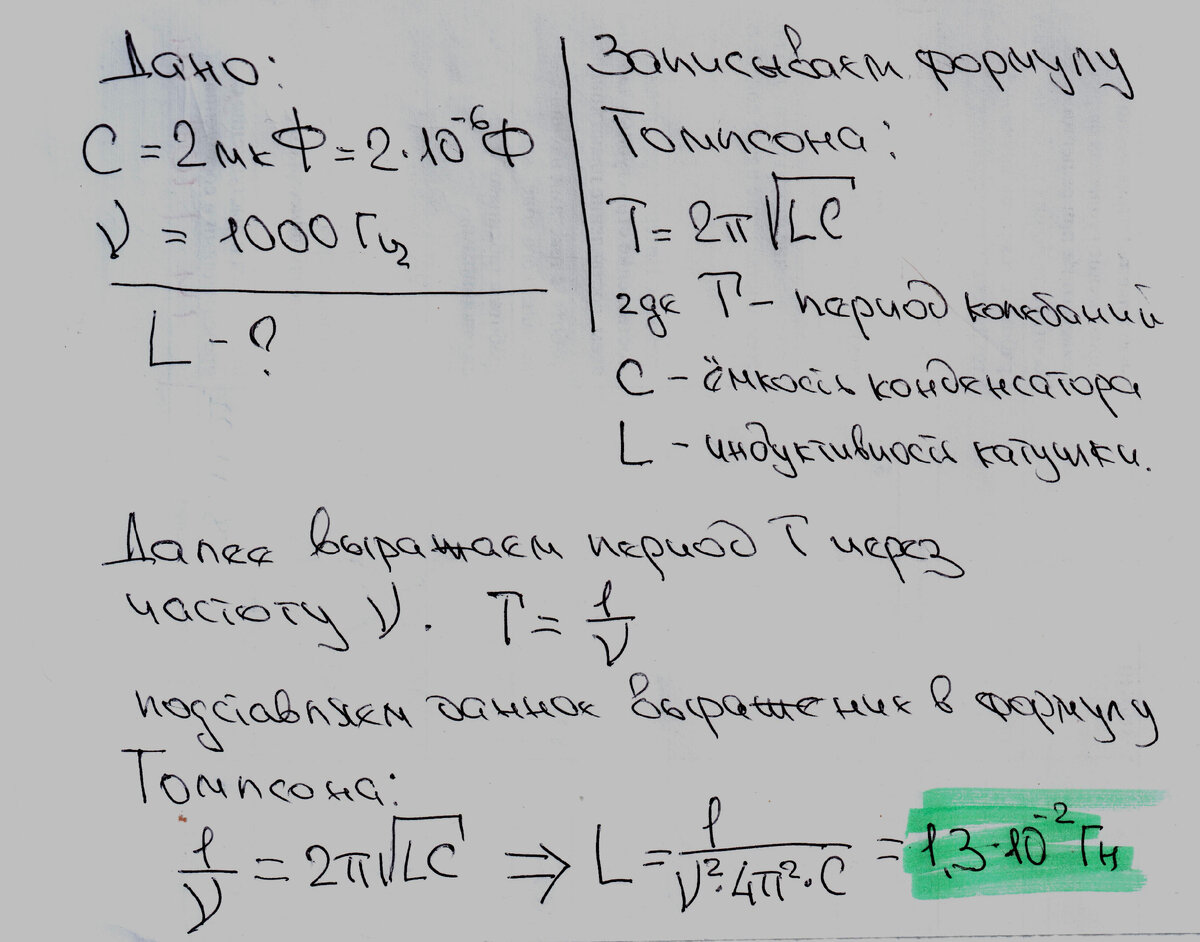 Дано:
C = 2 мкФ = 2·10⁻⁶Ф
ν = 1000 Гц
L - ?
Записываем формулу
Томпсона:
T = 2π√LC
где T - период колебаний
C - ёмкость конденсатора
L - индуктивность катушки.
Далее выражаем период T через
частоту ν. T = 1/ν
подставляем данное выражение в формулу
Томпсона:
1/ν = 2π√LC ⇒ L = 1/ν²·4π²·C = 1,3·10⁻² Гн